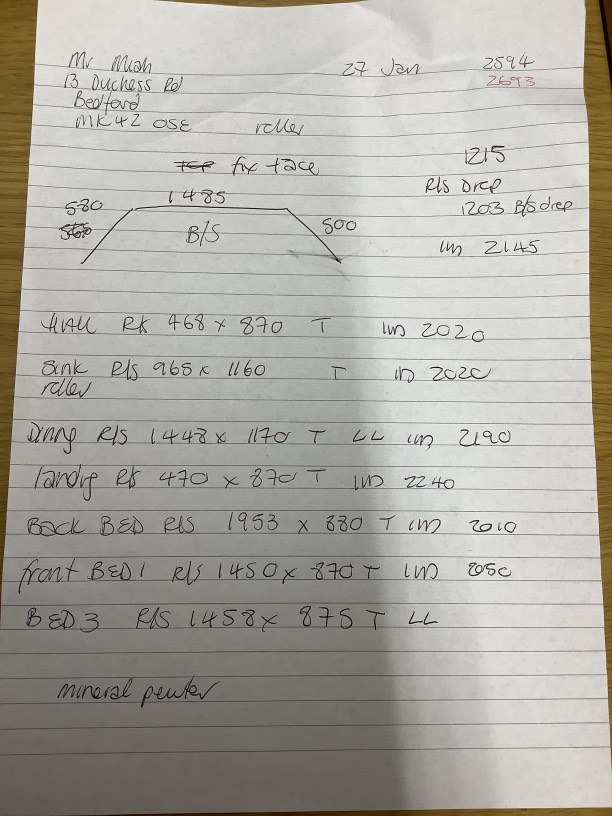 Mr Miah 27 Jan 2594
13 Duchess Rd 2693
Bedford
MK42 0SE roller
fix face 1215
1485 R/S Drop
580 1203 B/S drop
B/S 500
IW 2145
HALL RS 468 x 870 T IW 2020
Sink R/S 965 x 1160 T IW 2020
roller
Dinng R/S 1448 x 1170 T LL IW 2190
landig RS 470 x 870 T IW 2240
BACK BED R/S 1953 x 880 T IW 2010
front BED 1 R/S 1450 x 870 T IW 2050
BED 3 R/S 1458 x 875 T LL
mineral pewter